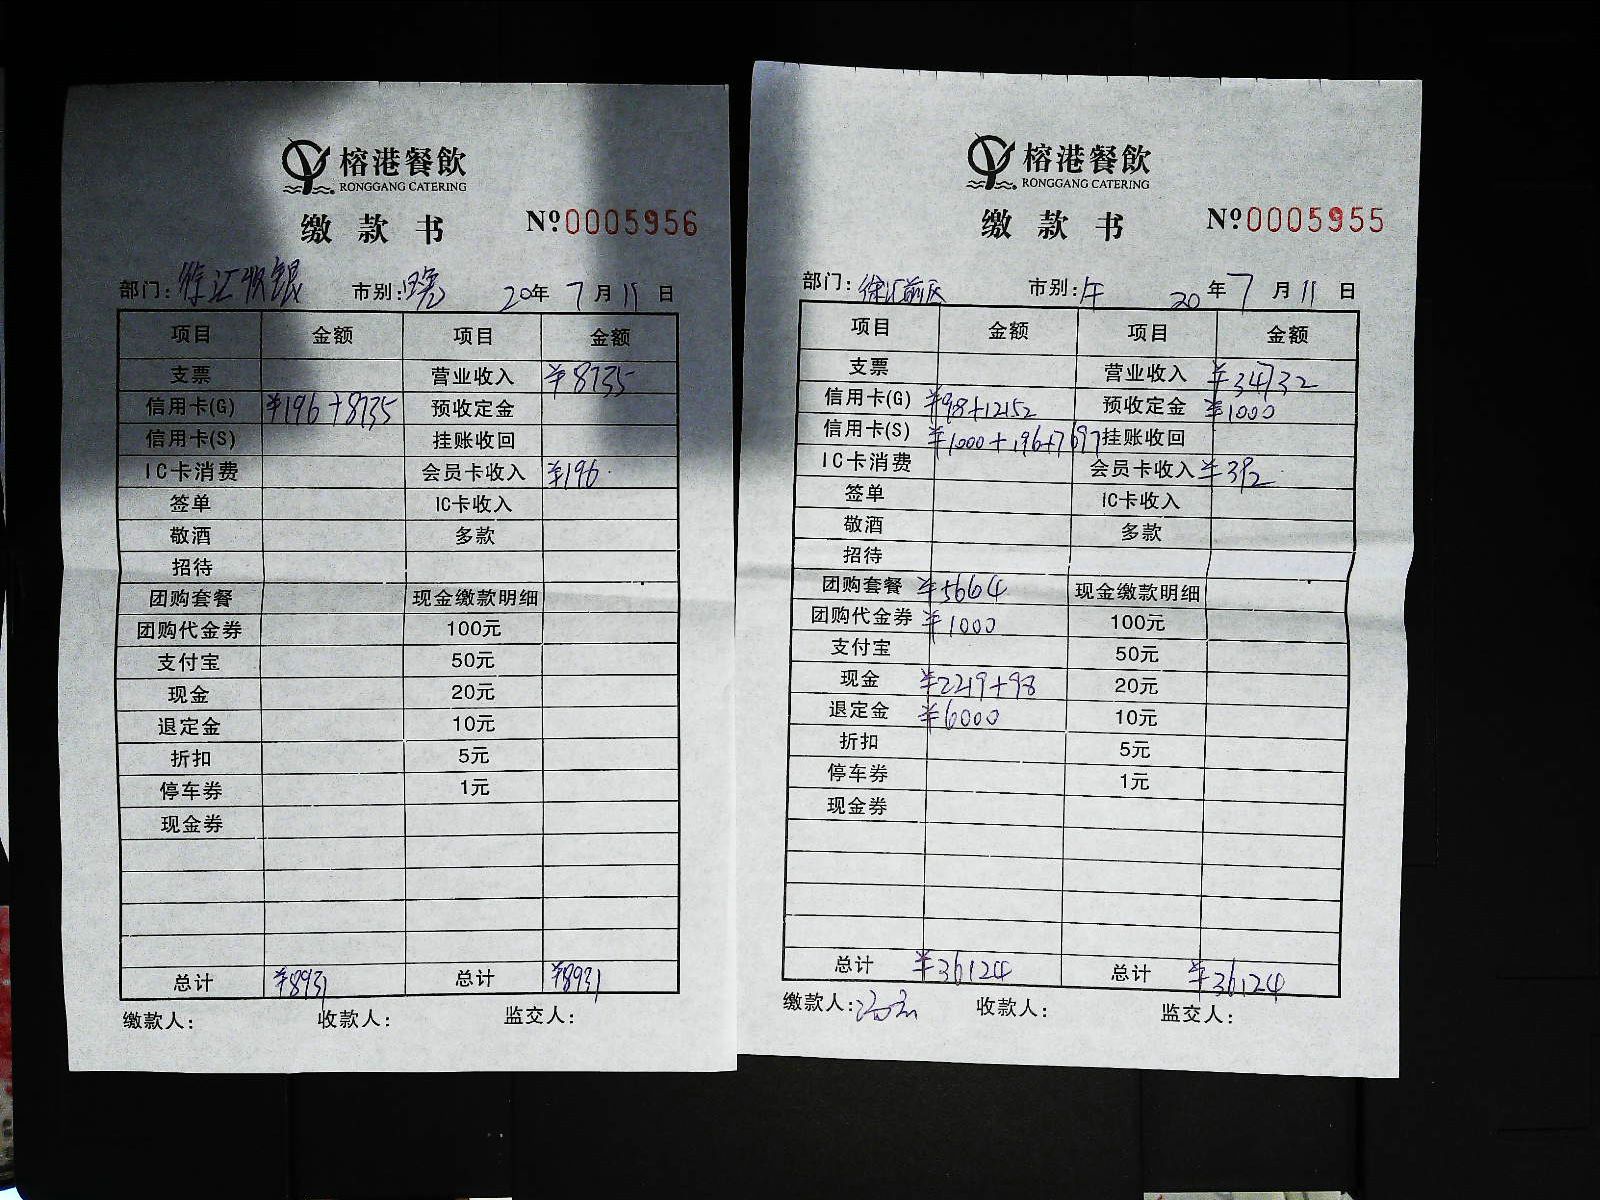 榕港餐飲
RONGGANG CATERING
缴款书 Nº0005956
部门:徐汇收银 市别:晚 20年7月11日
项目 金额 项目 金额
支票 营业收入 ¥8735
信用卡(G) ¥196+8735 预收定金
信用卡(S) 挂账收回
IC卡消费 会员卡收入 ¥196
签单 IC卡收入
敬酒 多款
招待
团购套餐 现金缴款明细
团购代金券 100元
支付宝 50元
现金 20元
退定金 10元
折扣 5元
停车券 1元
现金券
总计 ¥8931 总计 ¥8931
缴款人: 收款人: 监交人:
榕港餐飲
RONGGANG CATERING
缴款书 Nº0005955
部门:徐汇前厅 市别:午 20年7月11日
项目 金额 项目 金额
支票 营业收入 ¥34732
信用卡(G) ¥98+12152 预收定金 ¥1000
信用卡(S) ¥1000+196+7697 挂账收回
IC卡消费 会员卡收入 ¥392
签单 IC卡收入
敬酒 多款
招待
团购套餐 ¥5664 现金缴款明细
团购代金券 ¥1000 100元
支付宝 50元
现金 ¥2219+98 20元
退定金 ¥6000 10元
折扣 5元
停车券 1元
现金券
总计 ¥36124 总计 ¥36124
缴款人: 收款人: 监交人: